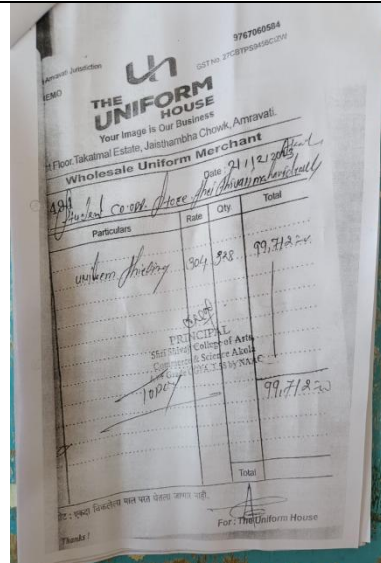 9767060584
Amravati Jurisdiction
GST No. 27CBTPS9458C1ZW
MEMO
Un
THE
UNIFORM
HOUSE
Your Image is Our Business
Floor, Takatmal Estate, Jaisthambha Chowk, Amravati.
Wholesale Uniform Merchant
Date 21/12/2015
Student co-opp. Store Shri Shivaji mahavidyaly
Particulars Rate Qty. Total
uniform Shirting 304 328 99,712
PRINCIPAL
Shri Shivaji College of Arts,
Commerce & Science Akola
by NAAC
99,712
Total
नोट : एकदा विकलेला माल परत घेतला जाणार नाही.
For : The Uniform House
Thanks !